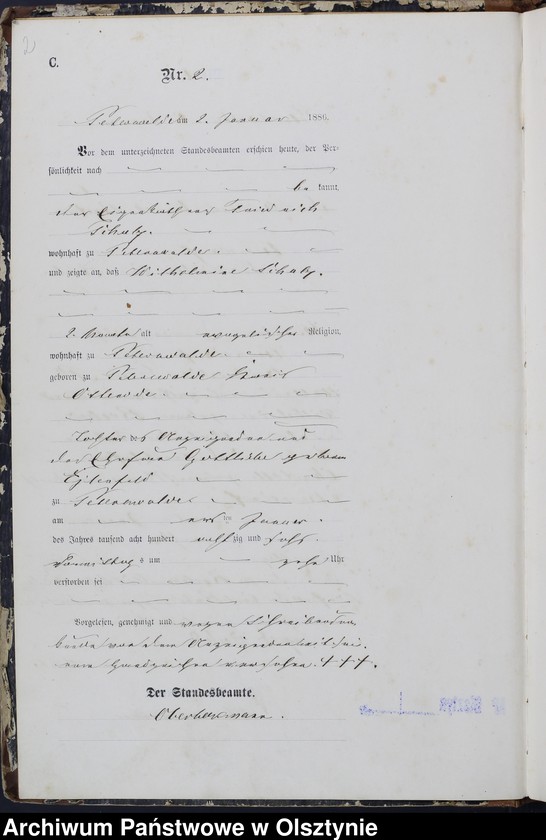 2
C.
Nr. 2.
am 2. Januar 1886.
Vor dem unterzeichneten Standesbeamten erschien heute, der Per-
sönlichkeit nach
be kannt,
der Eigenkäthner Heinrich
wohnhaft zu Peterswalde
und zeigte an, daß Wilhelmine
2 Monate alt evangelischer Religion,
wohnhaft zu Peterswalde
geboren zu Peterswalde Kreis
Osterode
Tochter des Anzeigenden und
der Ehefrau Gottliebe geborene
zu Peterswalde
am ersten Januar
des Jahres tausend acht hundert achtzig und sechs
Vormittags um zehn Uhr
verstorben sei
Vorgelesen, genehmigt und wegen Schreibens
von dem Anzeigenden mit sei-
nem Handzeichen versehen. + + +.
Der Standesbeamte.
Archiwum Państwowe w Olsztynie